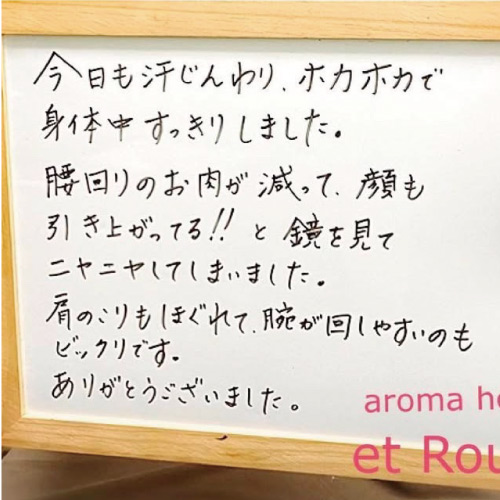 今日も汗じんわり、ホカホカで
身体中すっきりしました。
腰回りのお肉が減って、顔も
引き上がってる!!と鏡を見て
ニヤニヤしてしまいました。
肩のこりもほぐれて、腕が回しやすいのも
ビックリです。
ありがとうございました。
aroma he
et Rou